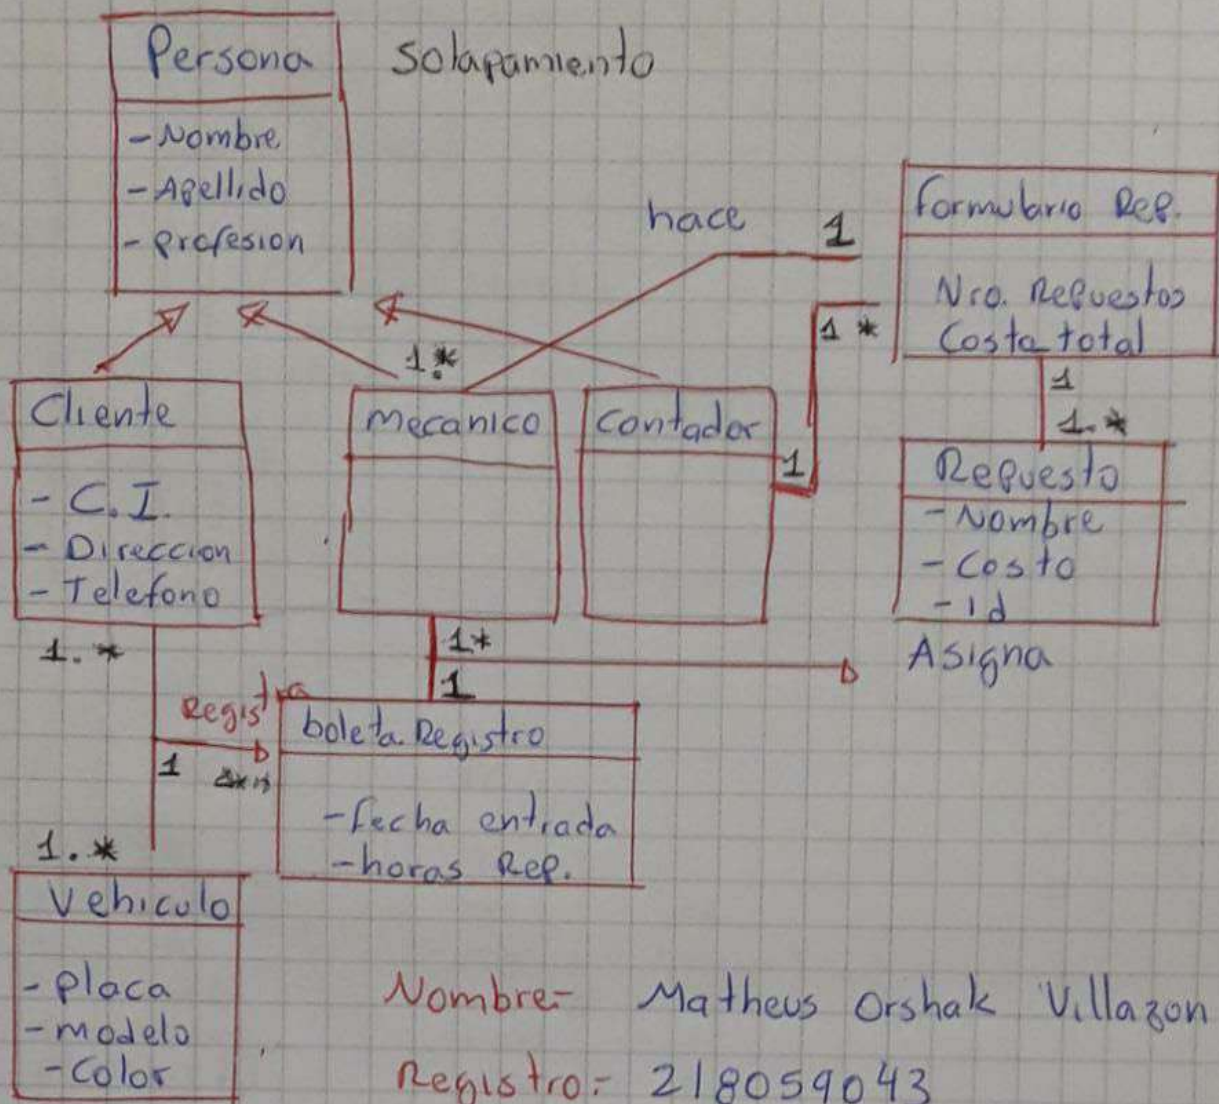 Persona
Solapamiento
-Nombre
-Apellido
-profesion
hace
1
formulario Rep.
Nro. Repuestos
Costa total
1 *
1
1.*
1.*
Cliente
- C.I.
- Direccion
- Telefono
mecanico
Contador
1
Repuesto
-Nombre
-Costo
-Id
1.*
1*
Asigna
1
Registra
boleta Registro
-fecha entrada
-horas Rep.
1
1.*
Vehiculo
-placa
-modelo
-Color
Nombre- Matheus Orshak Villazon
Registro:- 218059043